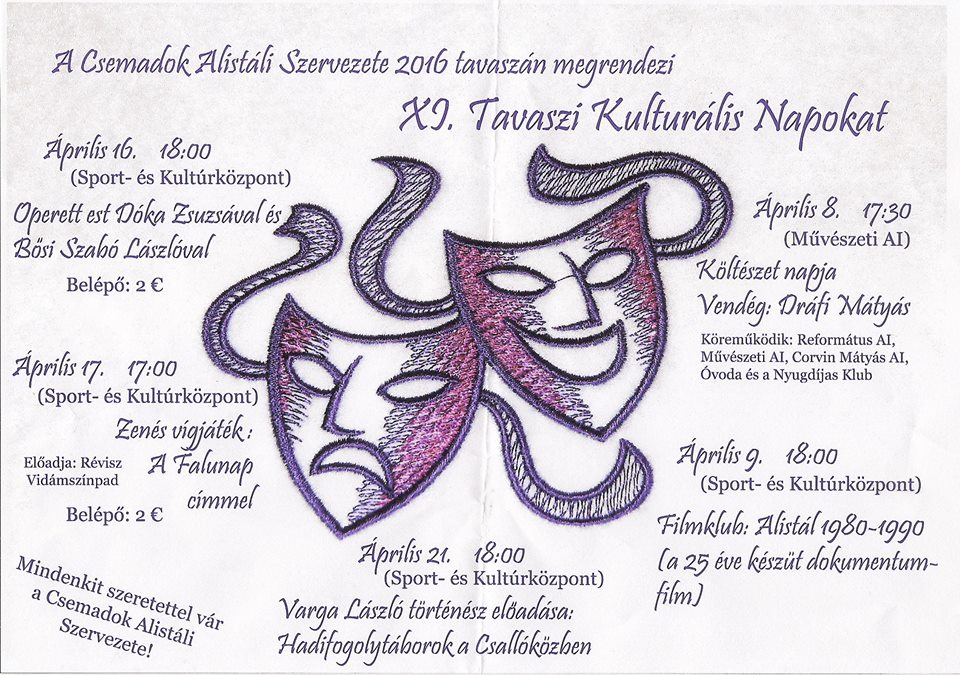 A Csemadok Alistáli Szervezete 2016 tavaszán megrendezi
XI. Tavaszi Kulturális Napokat
Április 8. 17:30
(Művészeti AI)
Költészet napja
Vendég: Dráfi Mátyás
Köreműködik: Református AI,
Művészeti AI, Corvin Mátyás AI,
Óvoda és a Nyugdíjas Klub
Április 9. 18:00
(Sport- és Kultúrközpont)
Filmklub: Alistál 1980-1990
(a 25 éve készüt dokumentum-
film)
Április 16. 18:00
(Sport- és Kultúrközpont)
Operett est Dóka Zsuzsával és
Bősi Szabó Lászlóval
Belépő: 2 €
Április 17. 17:00
(Sport- és Kultúrközpont)
Zenés vígjáték:
A Falunap
címmel
Előadja: Révisz
Vidámszínpad
Belépő: 2 €
Április 21. 18:00
(Sport- és Kultúrközpont)
Varga László történész előadása:
Hadifogolytáborok a Csallóközben
Mindenkit szeretettel vár
a Csemadok Alistáli
Szervezete!